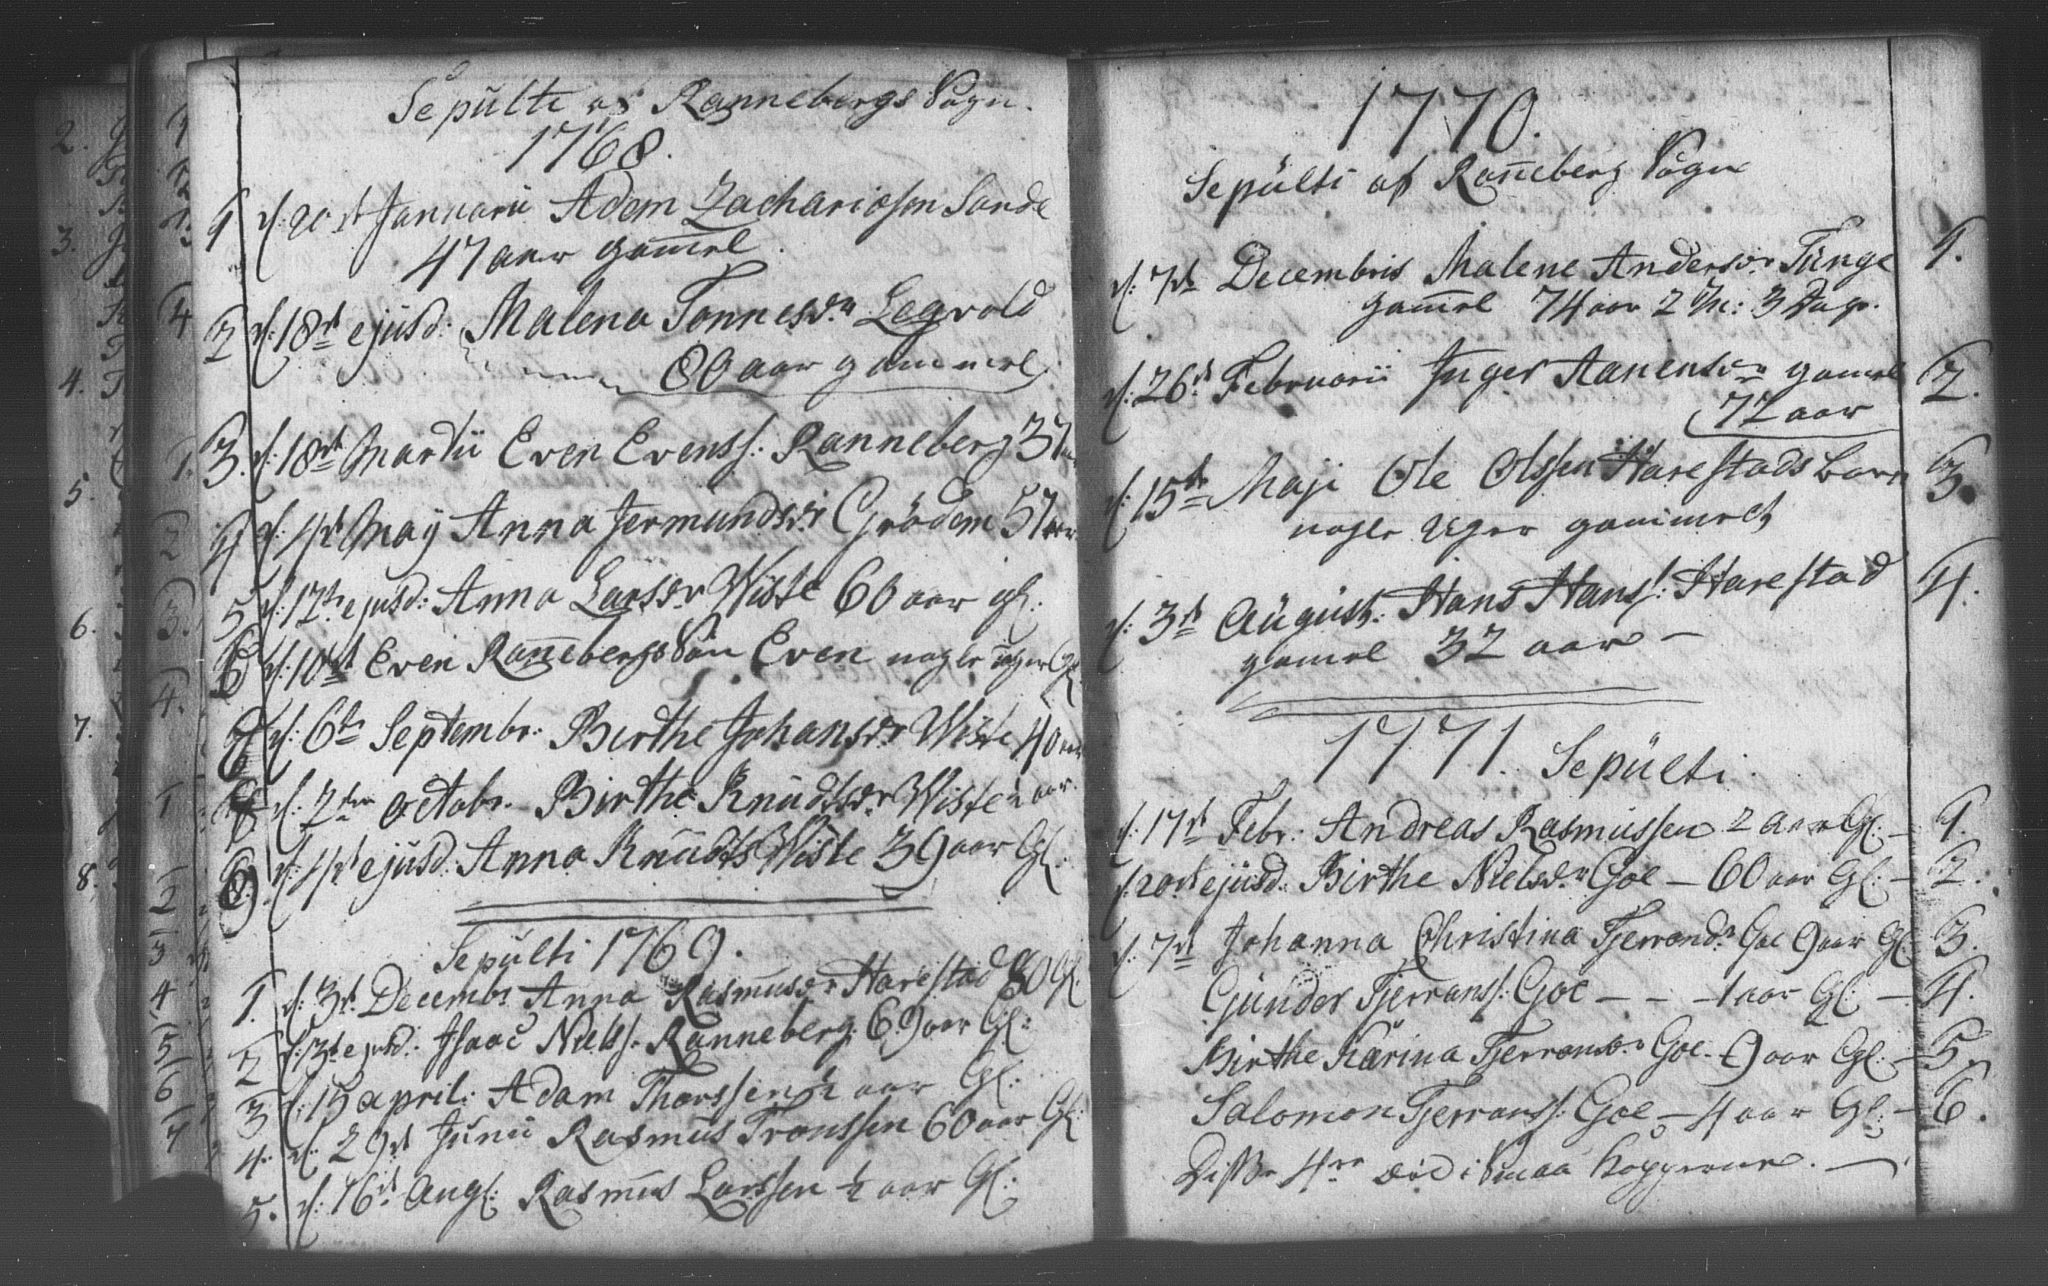 Sepulti af Rannebergs Sogn.
1768.
1 d: 20de Januarii Adam Zachariasøn Sande
47 aar gam̅el.
2 d: 18de ejusd: Malena Tonnesdr Legvold
80 aar gammel
3. d: 18de Martii Even Evenss: Ranneberg 37 aar
4 d: 4de Maÿ Anna Jermundsdr Grödem 57 aar
5 d: 17de ejusd: Anna Larsdr Wiste 60 aar gl:
6 d: 10de Even Ran̅ebergs Søn Even nogle uger Gl:
7 d: 6te Septembr: Birthe Johansdr Wiste 40 aar
8 d: 2den Octobr. Birthe Knudsdr Wiste aar
9. d: 4de ejusd: Anna Knuds Wiste 39 aar Gl:
Sepulti 1769.
1. d: 3de Decembr Anna Rasmusdr Harestad 80 Gl:
2 d: 3de ejusd: Isaac Nielss. Ranneberg 69 aar Gl:
3 d: 15 april: Adam Thorssen ½ aar Gl:
4. d: 29de Junii Rasmus Tronssen 60 aar Gl:
5. d: 16de Aug: Rasmus Larssen ½ aar Gl:
1770.
Sepülti af Ran̅eberg Sogn
d: 7de Decembris Malene Andersdr Tünge 1.
gam̅el 74 aar 2 M: 3 Dage.
d: 26de Februarii Inger Aanensdr gamel 2.
72 aar
d: 15de Maji Ole Olssen Harestads barn 3.
nogle Uger gammelt
d: 3de August: Hans Hanss: Harestad 4.
gamel 32 aar –
1771. Sepülti.
d: 17de Febr: Andreas Rasmussen 2 aar Gl: – 1.
d: 20de ejusd: Birthe Nielsdr Goe – 60 aar Gl: – 2.
d: 7de Johanna Christina Tjerrandsdr Goe 9 aar Gl: 3.
Gunder Tjerranss: Goe – – – 1 aar Gl: – 4.
Birthe Karina Tjerransdr Goe – 9 aar Gl: – 5.
Salomon Tjerranss: Goe – 4 aar Gl: – 6.
Disse 4re döe i Smaa Kopperne. –